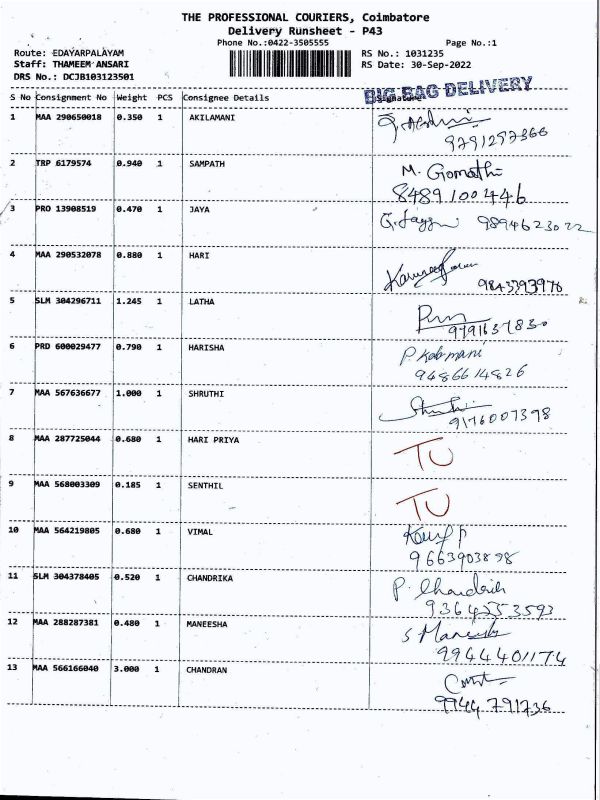 THE PROFESSIONAL COURIERS, Coimbatore
Delivery Runsheet - P43
Phone No.:0422-3505555 Page No.:1
Route: EDAYARPALAYAM RS No.: 1031235
Staff: THAMEEM ANSARI RS Date: 30-Sep-2022
DRS No.: DCJB103123501
BIG BAG DELIVERY
S No Consignment No Weight PCS Consignee Details Signature
1 MAA 290650018 0.350 1 AKILAMANI
9791297366
2 TRP 6179574 0.940 1 SAMPATH M. Gomathi
8489100446
3 PRO 13908519 0.470 1 JAYA
G. Jaya 9894623022
4 MAA 290532078 0.880 1 HARI
9843393976
5 SLM 304296711 1.245 1 LATHA
9791637830
6 PRD 600029477 0.790 1 HARISHA P. Kobmani
9486614826
7 MAA 567636677 1.000 1 SHRUTHI
9176007398
8 MAA 287725044 0.680 1 HARI PRIYA TU
9 MAA 568003309 0.185 1 SENTHIL TU
10 MAA 564219805 0.680 1 VIMAL
9663903898
11 SLM 304378405 0.520 1 CHANDRIKA P. Chandrik
9364253593
12 MAA 288287381 0.480 1 MANEESHA S Maneesha
9944401174
13 MAA 566166040 3.000 1 CHANDRAN
9944791236